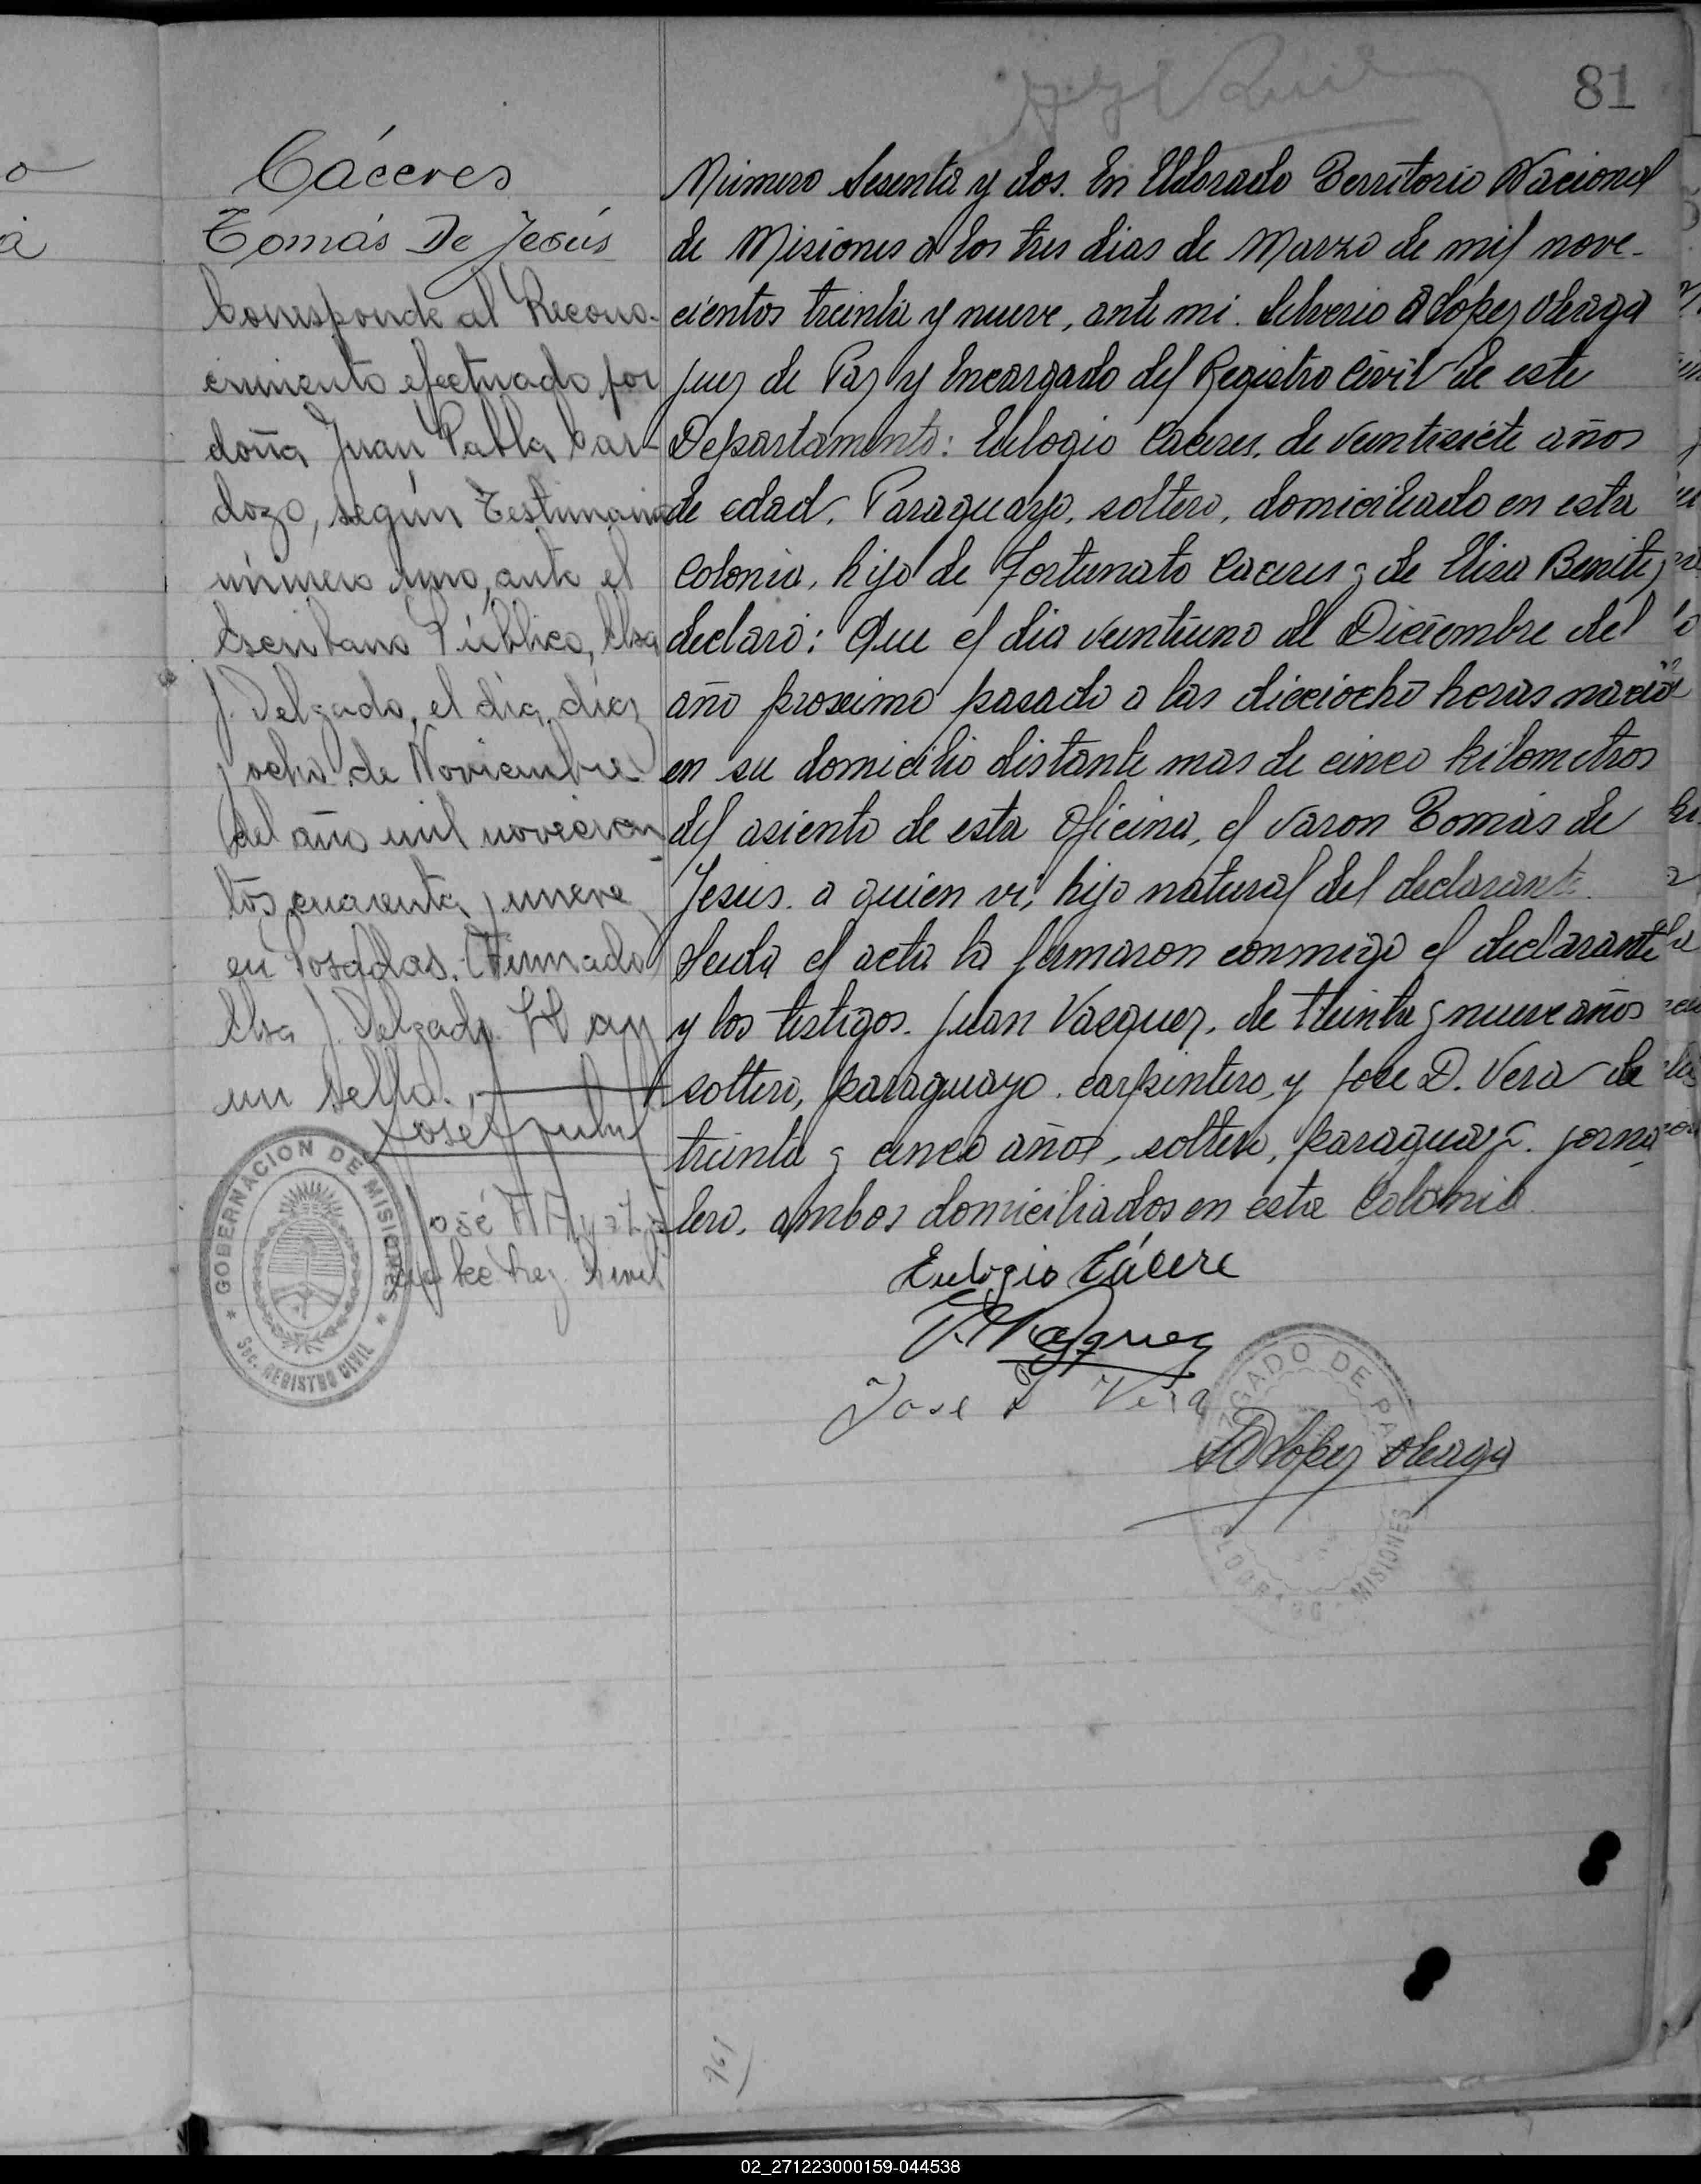 81
Cáceres
Tomás De Jesús
Corresponde al Recono-
cimiento efectuado por
doña Juan Pabla Car-
dozo, según Testimonio
número uno, ante el
Escribano Público, Elsa
J. Delgado, el día diez
y ocho de Noviembre
del año mil novecien-
tos cuarenta y nueve
en Posadas. (Firmado)
Elsa J. Delgado. Hay
un sello.
GOBERNACION DE MISIONES
SEC. REGISTRO CIVIL
José A
Reg. Civil
Número Sesenta y dos. En Eldorado Territorio Nacional
de Misiones a los tres dias de Marzo de mil nove-
cientos treinta y nueve, ante mi. Silverio A Lopez Oleaga
Juez de Paz y Encargado del Registro Civil de este
Departamento: Eulogio Caceres, de veintisiete años
de edad, Paraguayo, soltero, domiciliado en esta
Colonia, hijo de Fortunato Caceres y de Elisa Benitez
declaró: Que el dia veintiuno de Diciembre del
año proximo pasado a las dieciocho horas nació
en su domicilio distante mas de cinco kilometros
del asiento de esta Oficina, el varon Tomás de
Jesus. a quien vi, hijo natural del declarante.
Leida el acta la firmaron conmigo el declarante
y los testigos. Juan Vazquez, de treinta y nueve años
soltero, paraguayo. carpintero, y Jose D. Vera de
treinta y cinco años, soltero, paraguayo. jorna
lero, ambos domiciliados en esta Colonia.
Eulogio Cácere
J. Vazquez
Jose D Vera
JUZGADO DE PAZ
ELDORADO MISIONES
A Lopez Oleaga
761
02_271223000159-044538